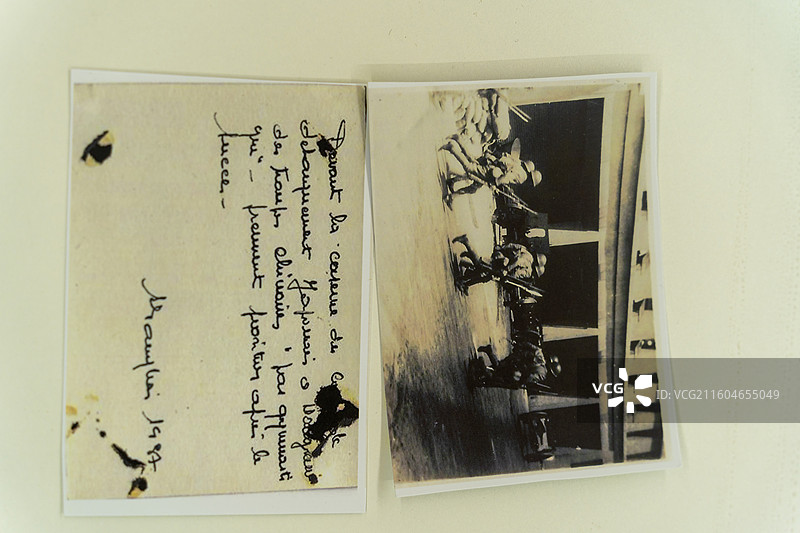 Devant la caserne des
detachement Japonais
des troupes chinoises
qui - prennent position après le
succes -
Shanghai 1937
VCG ID: VCG211604655049